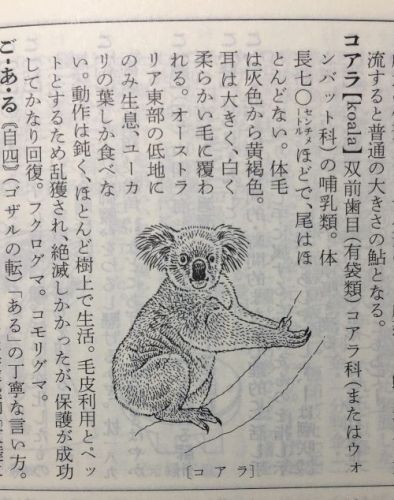 流すると普通の大きさの鮎となる。
コアラ【koala】双前歯目(有袋類)コアラ科(またはウォ
ンバット科)の哺乳類。体
長七〇センチメートルほどで、尾はほ
とんどない。体毛
は灰色から黄褐色。
耳は大きく、白く
柔らかい毛に覆わ
れる。オーストラ
リア東部の低地に
のみ生息、ユーカ
リの葉しか食べな
い。動作は鈍く、ほとんど樹上で生活。毛皮利用とペッ
トとするため乱獲され、絶滅しかかったが、保護が成功
してかなり回復。フクログマ。コモリグマ。
ご‐あ・る《自四》(ゴザルの転)「ある」の丁寧な言い方。
[コアラ]